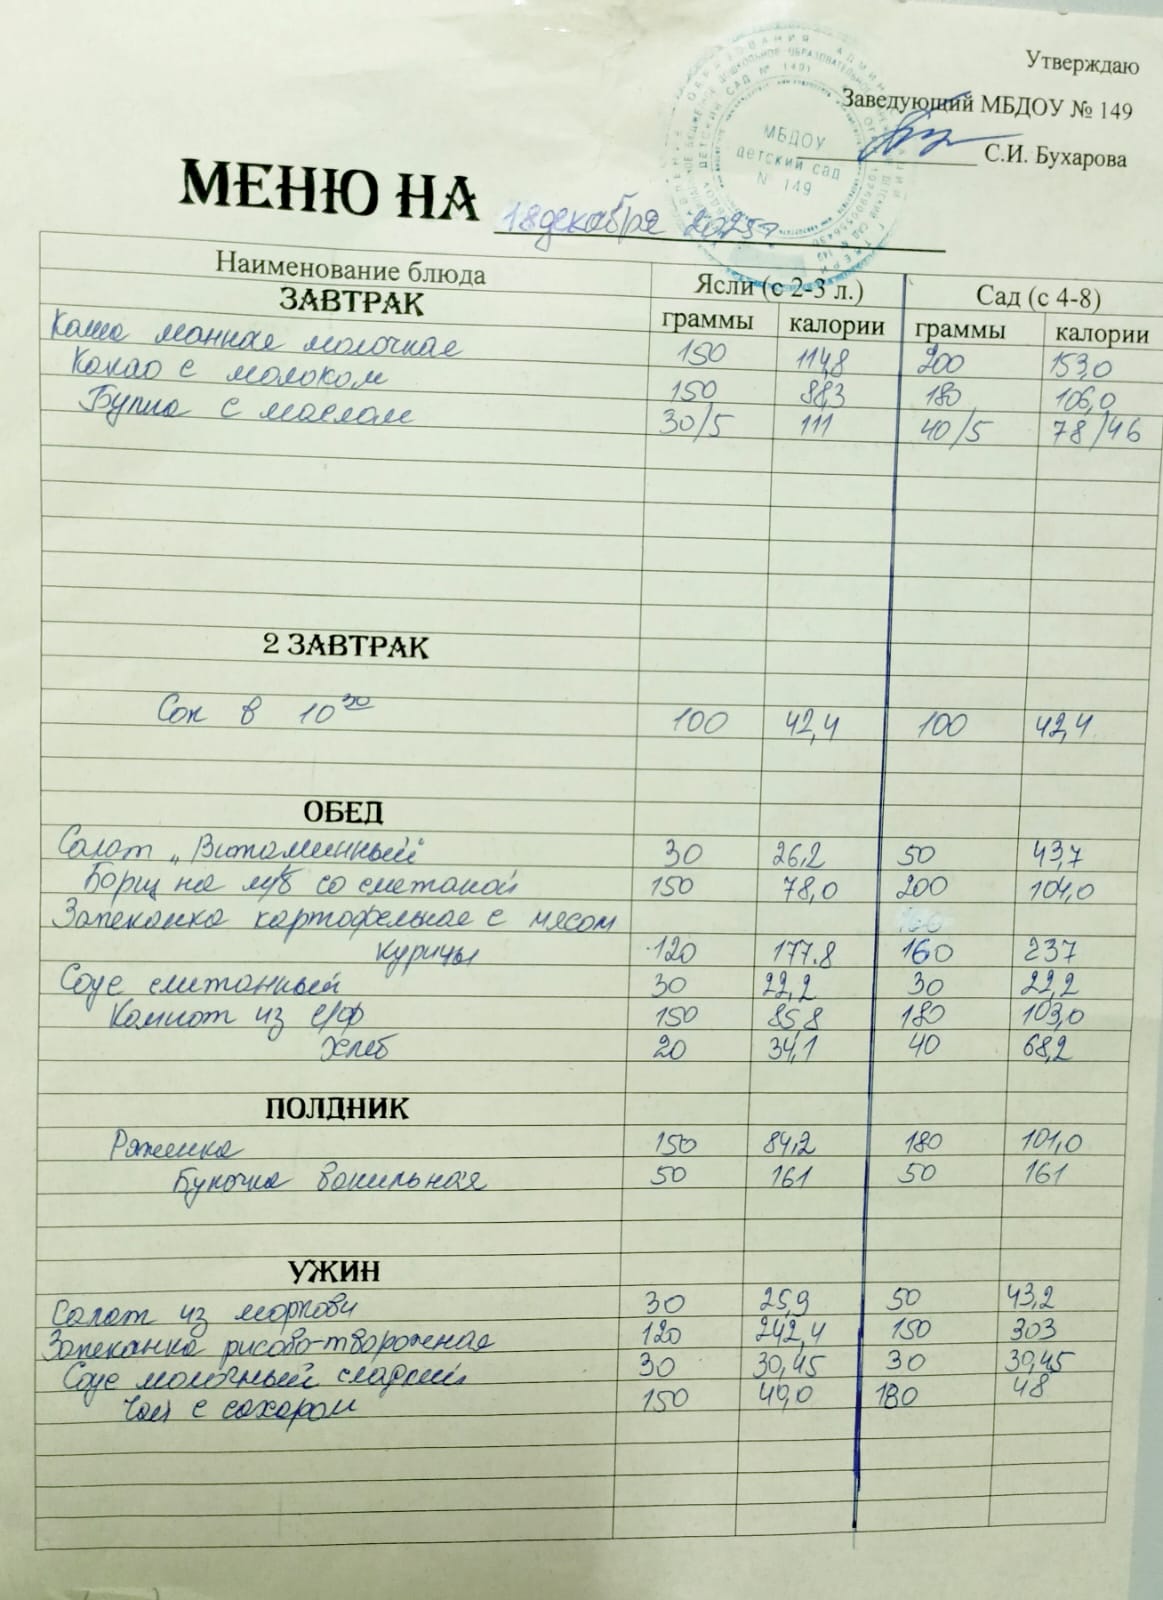 Утверждаю
Заведующий МБДОУ № 149
С.И. Бухарова
МБДОУ
детский сад
№ 149
МЕНЮ НА 18 декабря 2025г
Наименование блюда Ясли (с 2-3 л.) Сад (с 4-8)
ЗАВТРАК граммы калории граммы калории
Каша манная молочная 150 114,8 200 153,0
Какао с молоком 150 88,3 180 106,0
Булка с маслом 30/5 111 40/5 78/46
2 ЗАВТРАК
Сок в 10 30 100 42,4 100 42,4
ОБЕД
Салат „Витаминный" 30 26,2 50 43,7
Борщ на м/б со сметаной 150 78,0 200 104,0
Запеканка картофельная с мясом
курицы 120 177.8 160 237
Соус сметанный 30 22,2 30 22,2
Компот из с/ф 150 85,8 180 103,0
Хлеб 20 34,1 40 68,2
ПОЛДНИК
Ряженка 150 84,2 180 101,0
Булочка ванильная 50 161 50 161
УЖИН
Салат из моркови 30 25,9 50 43,2
Запеканка рисово-творожная 120 242,4 150 303
Соус молочный сладкий 30 30,45 30 30,45
Чай с сахаром 150 40,0 180 48